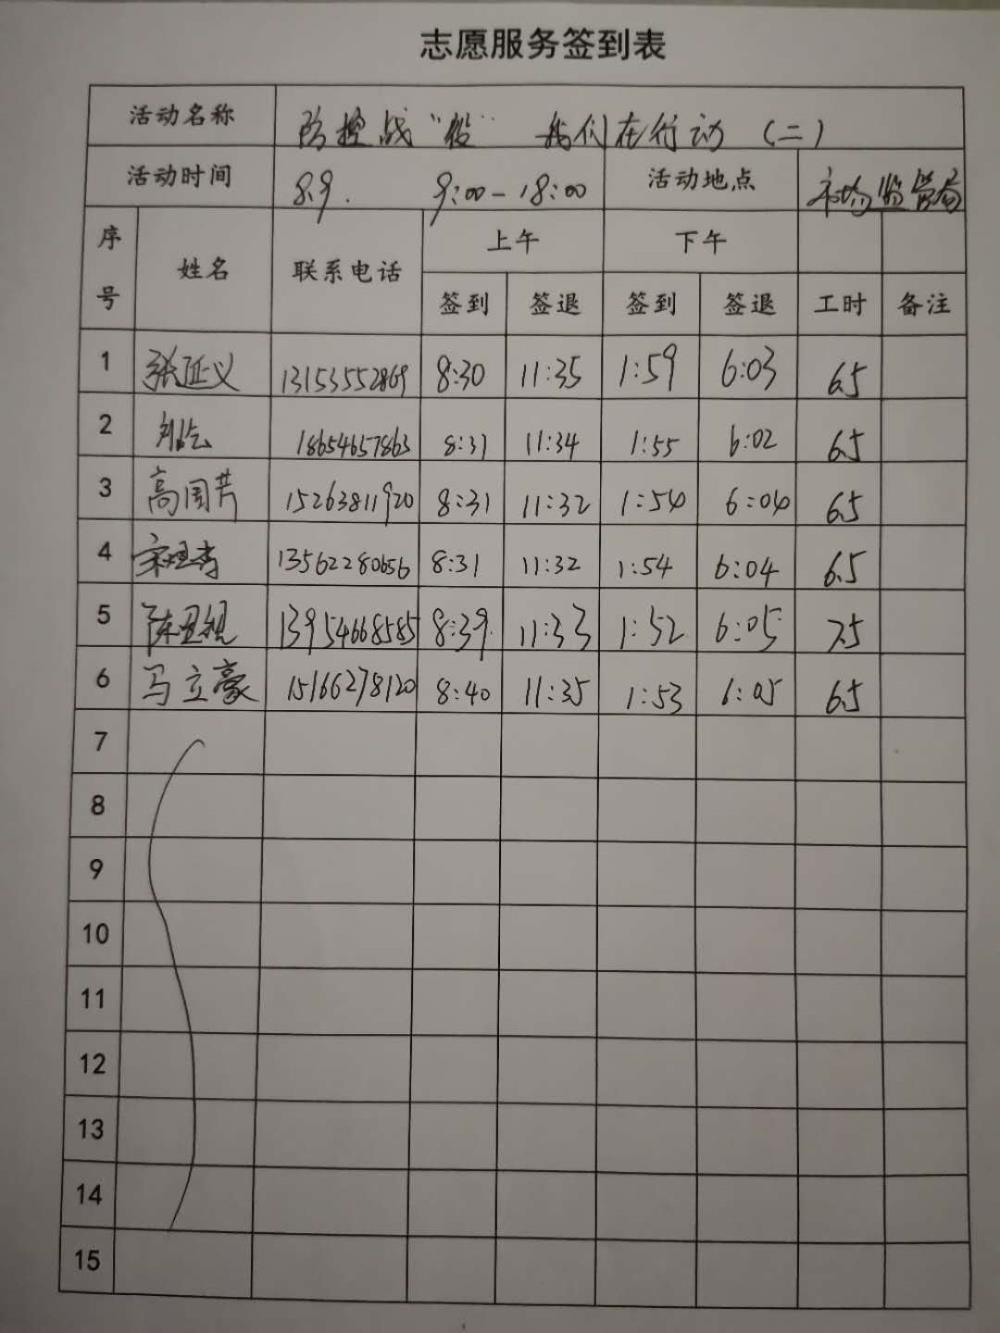 志愿服务签到表
活动名称 防控战“役” 我们在行动（二）
活动时间 8.9. 9:00-18:00 活动地点 市场监管局
序号 姓名 联系电话 上午 下午
签到 签退 签到 签退 工时 备注
1 张延义 13153552869 8:30 11:35 1:59 6:03 6.5
2 18654657863 8:31 11:34 1:55 6:02 6.5
3 高国芹 15263811920 8:31 11:32 1:54 6:04 6.5
4 13562280656 8:31 11:32 1:54 6:04 6.5
5 13954668585 8:39 11:33 1:52 6:05 7.5
6 马立豪 15166278120 8:40 11:35 1:53 6:05 6.5
7
8
9
10
11
12
13
14
15